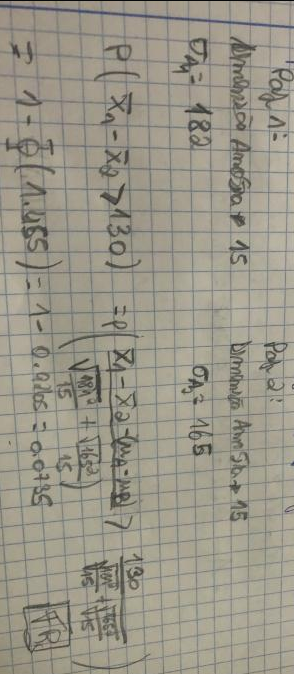 Pop 1:
Dimensão Amostra → 15
σ₁ = 182
Pop 2:
Dimensão Amostra → 15
σ₂ = 165
P( X̄₁ - X̄₂ > 130 ) = P( X̄₁ - X̄₂ - (μ₁ - μ₂) / √ 15 + √ 165² 15 > 130 / √ 15 + √ 165² 15 )
= 1 - Φ( 1.455 ) = 1 - 0.9265 = 0.0735